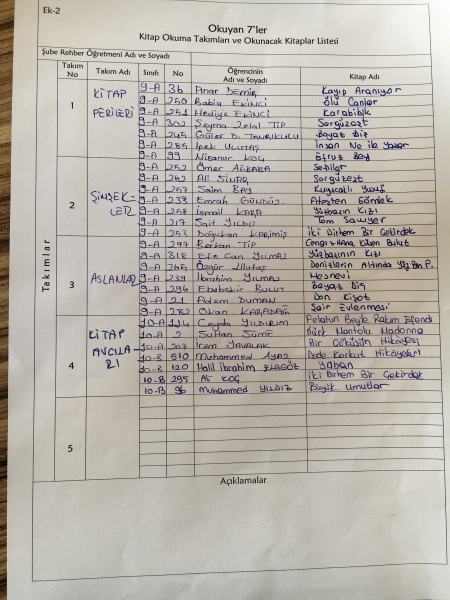 Ek-2
Okuyan 7'ler
Kitap Okuma Takımları ve Okunacak Kitaplar Listesi
Şube Rehber Öğretmeni Adı ve Soyadı
Takım No Takım Adı Sınıfı No Öğrencinin Adı ve Soyadı Kitap Adı
Takımlar
1 KİTAP PERİLERİ
9-A 36 Pınar DEMİR Kayıp Aranıyor
9-A 250 Rabia EKİNCİ Ölü Canlar
9-A 251 Hediye EKİNCİ Karabibik
9-A 302 Şeyma Zelal TİP Sergüzeşt
9-A 245 Güler D. Beyaz Diş
9-A 285 İpek ULUTAŞ İnsan Ne ile Yaşar
9-A 99 Nisanur KOÇ Efruz Bey
2 ŞİMŞEKLER
9-A 252 Ömer Sefiller
9-A 262 Ali Sergüzeşt
9-A 257 Saim BAY Kuyucaklı Yusuf
9-A 239 Emrah GÜNDÜZ Ateşten Gömlek
9-A 258 İsmail KARA Yüzbaşının Kızı
9-A 217 Sait YILDIZ Tom Sawyer
9-A 253 Doğukan İki Dirhem Bir Çekirdek
3 ASLANLAR
9-A 297 Berkan TİP Cengiz Hana Küsen Bulut
9-A 318 Efe Can YILMAZ Yüzbaşının Kızı
9-A 265 Özgür Ulutaş Denizlerin Altında
9-A 239 İbrahim YILMAZ Mesnevi
9-A 296 Ebubekir BULUT Beyaz Diş
9-A 21 Adem DUMAN Don Kişot
9-A 282 Okan KARADAĞ Şair Evlenmesi
4 KİTAP AVCILARI
10-A 114 Ceyda YILDIRIM Felatun Beyle Rakım Efendi
10-A 2 Sultan Kürk Mantolu Madonna
10-A İrem Bir
10-B 510 Muhammed Dede Korkut Hikayeleri
10-B 120 Halil İbrahim Yaban
10-B 295 Ali KOÇ İki Dirhem Bir Çekirdek
10-B 96 Muhammed YILDIZ Büyük Umutlar
5
Açıklamalar